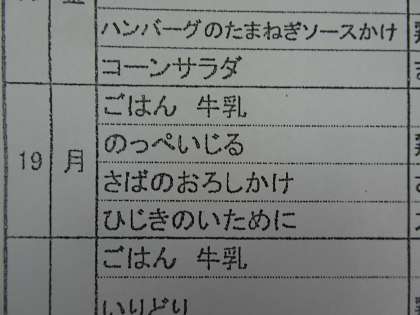 ハンバーグのたまねぎソースかけ
コーンサラダ
ごはん 牛乳
のっぺいじる
19 月 さばのおろしかけ
ひじきのいために
ごはん 牛乳
いりどり